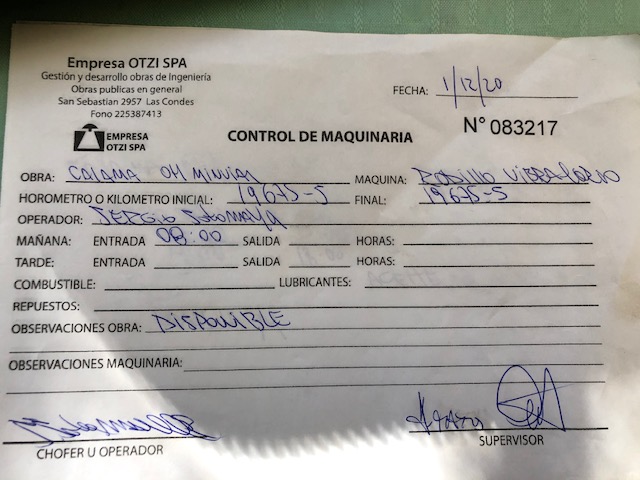 Empresa OTZI SPA
Gestión y desarrollo obras de Ingeniería
Obras publicas en general
San Sebastian 2957 Las Condes
Fono 225387413
FECHA: 1/12/20
EMPRESA
OTZI SPA
CONTROL DE MAQUINARIA
N° 083217
OBRA: CALAMA MAQUINA: RODILLO
HOROMETRO O KILOMETRO INICIAL: 19675-5 FINAL: 19675-5
OPERADOR: SERGIO
MAÑANA: ENTRADA 08:00 SALIDA HORAS:
TARDE: ENTRADA SALIDA HORAS:
COMBUSTIBLE: LUBRICANTES:
REPUESTOS:
OBSERVACIONES OBRA: DISPONIBLE
OBSERVACIONES MAQUINARIA:
CHOFER U OPERADOR SUPERVISOR